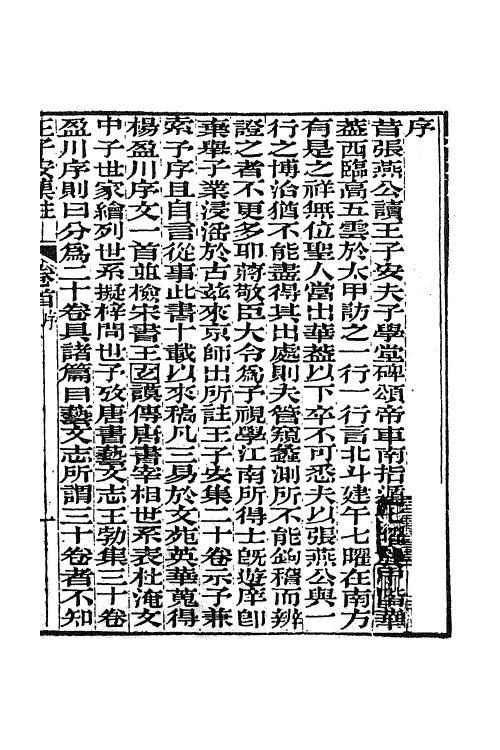 序
昔張燕公讀王子安夫子學堂碑頌帝車南指遁七曜於中階華
蓋西臨高五雲於太甲訪之一行一行言北斗建午七曜在南方
有是之祥無位聖人當出華蓋以下卒不可悉夫以張燕公與一
行之博洽猶不能盡得其出處則夫管窺蠡測所不能鉤稽而辨
證之者不更多耶蔣敬臣大令爲予視學江南所得士旣遊庠卽
棄舉子業浸淫於古茲來京師出所註王子安集二十卷示予兼
索予序且自言從事此書十載以來稿凡三易於文苑英華蒐得
楊盈川序文一首並檢宋書王玄謨傳唐書宰相世系表杜淹文
中子世家繪列世系擬梓問世予攷唐書藝文志王勃集三十卷
盈川序則曰分爲二十卷具諸篇目藝文志所謂三十卷者不知
王子安集註 卷首 序 一